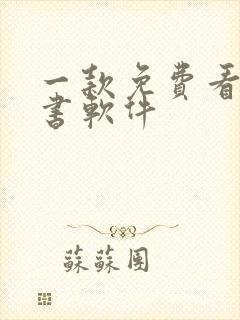 一款免費看
書軟件
蘇蘇團